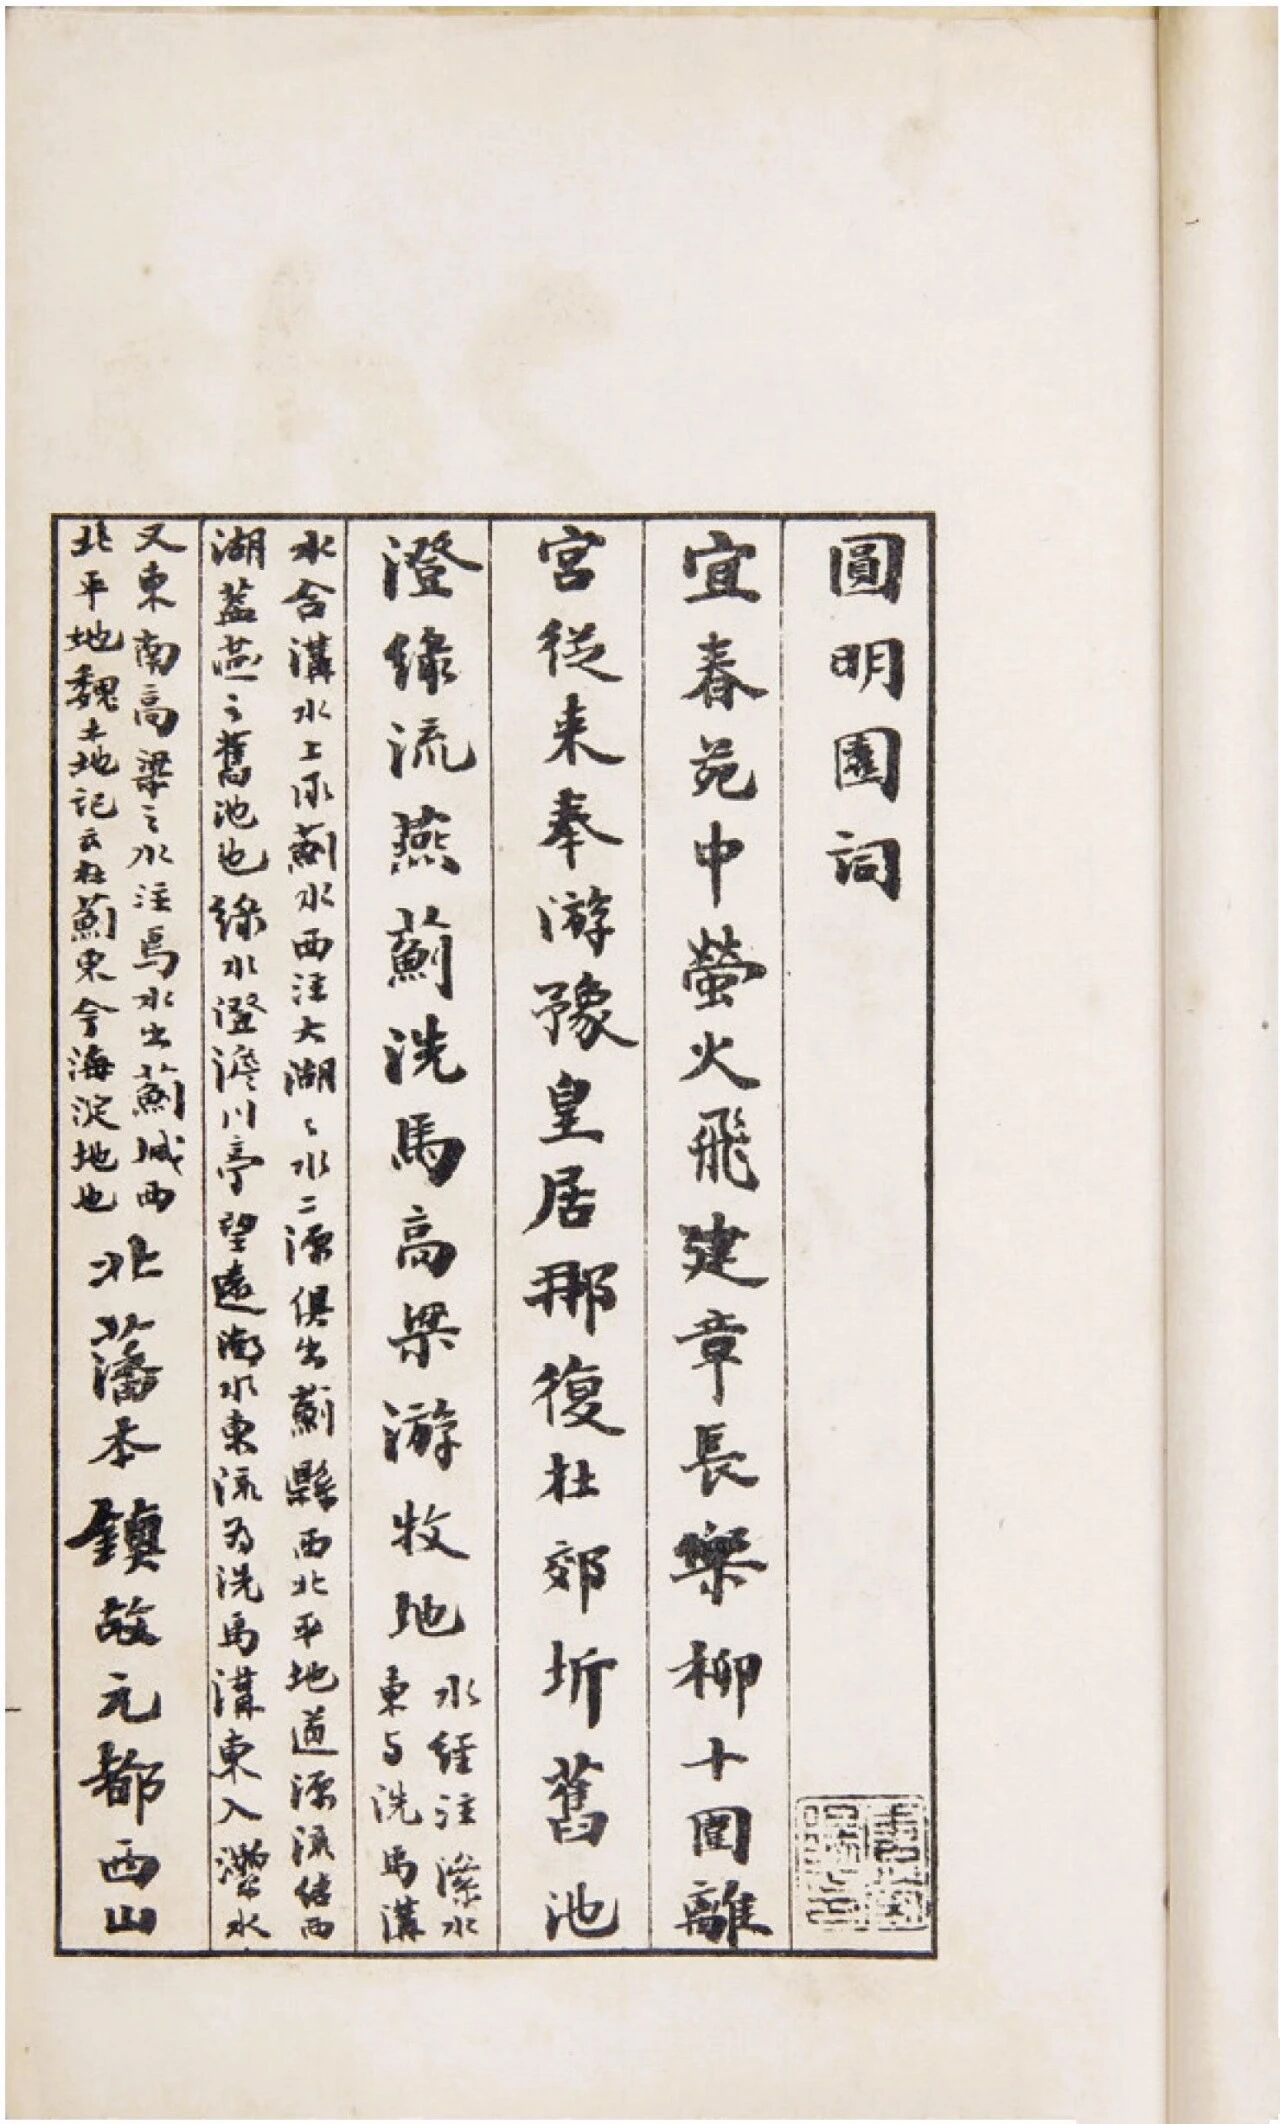 圓明園詞
宜春苑中螢火飛建章長樂柳十圍離
宮從来奉游豫皇居那復在郊圻舊池
澄綠流燕薊洗馬高梁游牧地
水經注㶟水
東与洗馬溝
水合溝水上承薊水西注大湖〻水二源俱出薊縣西北平地道源流結西
湖蓋燕之舊池也綠水澄澹川亭望遠湖水東流為洗馬溝東入㶟水
又東南高梁之水注焉水出薊城西
北平地魏土地記云在薊東今海淀地也
北藩本鎮故元都西山